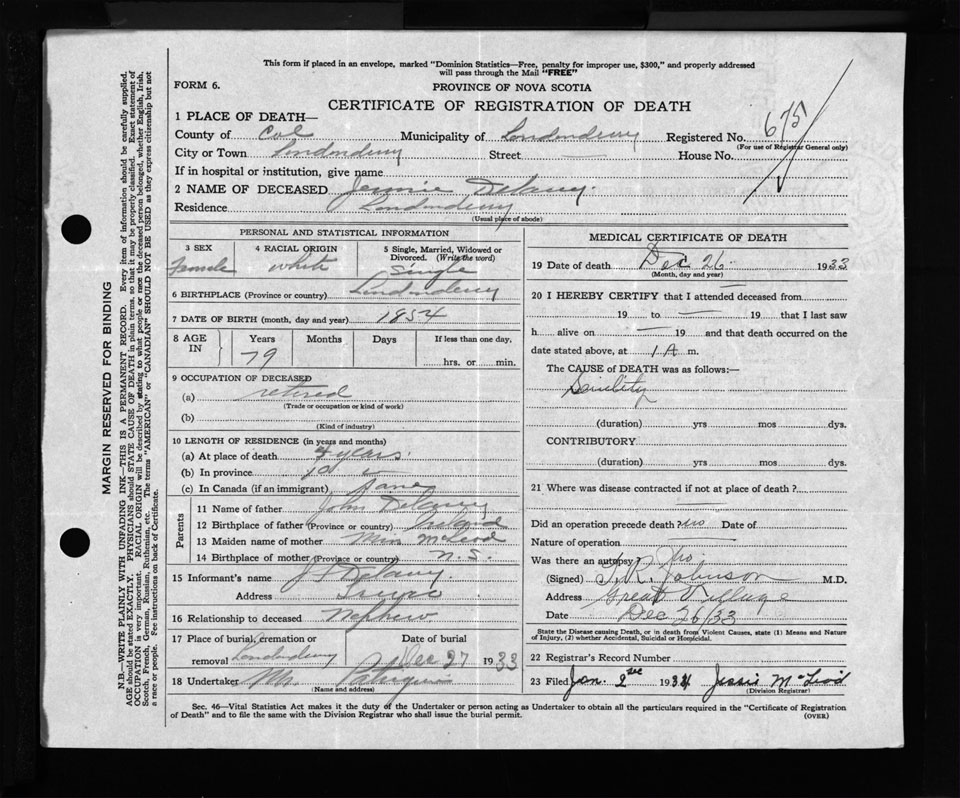 This form if placed in an envelope, marked "Dominion Statistics—Free, penalty for improper use, $300," and properly addressed
will pass through the Mail "FREE"
FORM 6.
PROVINCE OF NOVA SCOTIA
CERTIFICATE OF REGISTRATION OF DEATH
1 PLACE OF DEATH—
County of Col Municipality of Londonderry Registered No. 675
(For use of Registrar General only)
City or Town Londonderry Street House No.
If in hospital or institution, give name
2 NAME OF DECEASED Jennie Delaney.
Residence Londonderry
(Usual place of abode)
PERSONAL AND STATISTICAL INFORMATION
3 SEX 4 RACIAL ORIGIN 5 Single, Married, Widowed or Divorced. (Write the word)
Female white Single
6 BIRTHPLACE (Province or country) Londonderry
7 DATE OF BIRTH (month, day and year) 1854
8 AGE IN Years Months Days If less than one day,
79 hrs. or min.
9 OCCUPATION OF DECEASED
(a) retired
(Trade or occupation or kind of work)
(b)
(Kind of industry)
10 LENGTH OF RESIDENCE (in years and months)
(a) At place of death years.
(b) In province
(c) In Canada (if an immigrant) Same
Parents
11 Name of father John Delaney
12 Birthplace of father (Province or country) Ireland
13 Maiden name of mother Miss McLeod
14 Birthplace of mother (Province or country) N.S.
15 Informant's name Delaney.
Address Truro
16 Relationship to deceased Nephew
17 Place of burial, cremation or removal Londonderry Date of burial Dec 27 1933
18 Undertaker
(Name and address)
MEDICAL CERTIFICATE OF DEATH
19 Date of death Dec 26. 1933
(Month, day and year)
20 I HEREBY CERTIFY that I attended deceased from
19 to 19 that I last saw
h alive on 19 and that death occurred on
date stated above, at 1 A m.
The CAUSE of DEATH was as follows:—
Senility
(duration) yrs mos dys.
CONTRIBUTORY
(duration) yrs mos dys.
21 Where was disease contracted if not at place of death?
Did an operation precede death? no Date of
Nature of operation
Was there an autopsy? No
(Signed) T. R. Johnson M.D.
Address Great Village
Date Dec 26/33
State the Disease causing Death, or in death from Violent Causes, state (1) Means and Nature
of Injury, (2) whether Accidental, Suicidal or Homicidal.
22 Registrar's Record Number
23 Filed Jan. 2nd 1934 Jessie McLeod
(Division Registrar)
Sec. 46—Vital Statistics Act makes it the duty of the Undertaker or person acting as Undertaker to obtain all the particulars required in the "Certificate of Registration
of Death" and to file the same with the Division Registrar who shall issue the burial permit.
(OVER)
MARGIN RESERVED FOR BINDING
N.B.—WRITE PLAINLY WITH UNFADING INK—THIS IS A PERMANENT RECORD. Every item of information should be carefully supplied.
AGE should be stated EXACTLY. PHYSICIANS should STATE CAUSE OF DEATH in plain terms, so that it may be properly classified. Exact statement of
OCCUPATION is very important. RACIAL ORIGIN will be described by stating to what people or race the deceased person belonged, whether English, Irish,
Scotch, French, German, Russian, Ruthenian, etc. The terms "AMERICAN" or "CANADIAN" SHOULD NOT BE USED as they express citizenship but not
a race or people. See instructions on back of Certificate.